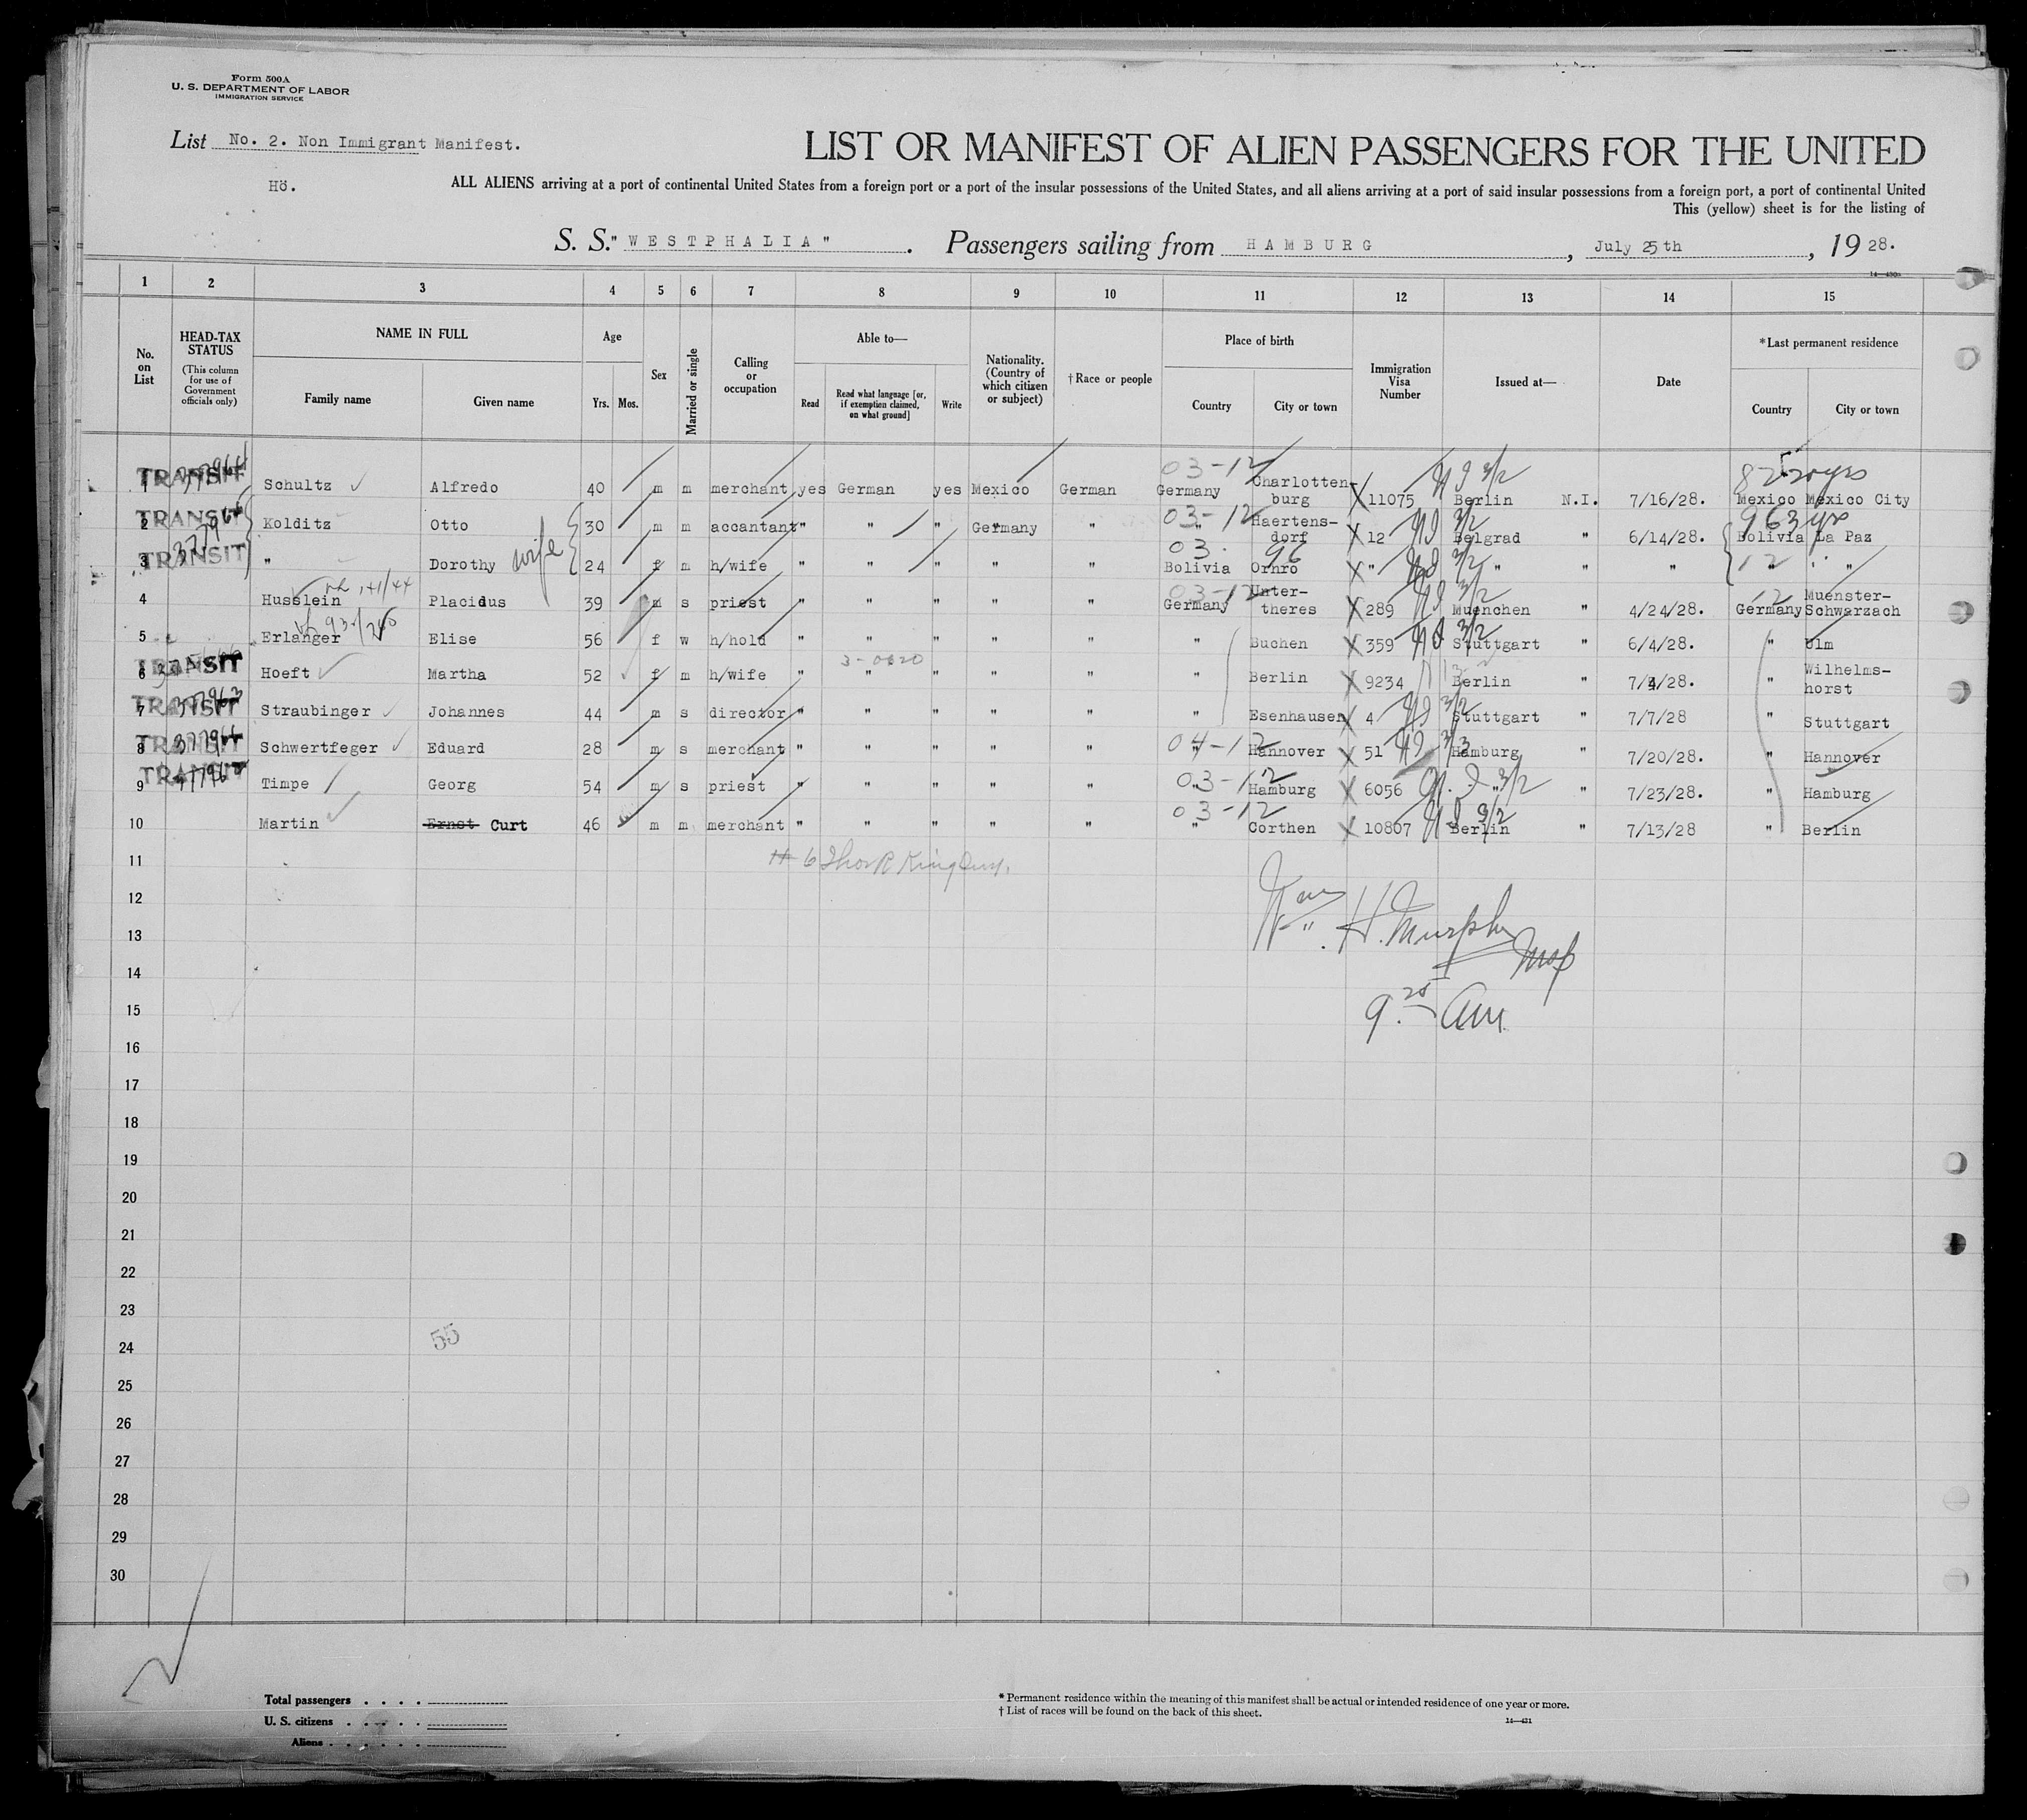 Form 500A
U. S. DEPARTMENT OF LABOR
IMMIGRATION SERVICE
List No. 2. Non Immigrant Manifest.
LIST OR MANIFEST OF ALIEN PASSENGERS FOR THE UNITED
Hö.
ALL ALIENS arriving at a port of continental United States from a foreign port or a port of the insular possessions of the United States, and all aliens arriving at a port of said insular possessions from a foreign port, a port of continental United
This (yellow) sheet is for the listing of
S. S. "WESTPHALIA". Passengers sailing from HAMBURG, July 25th, 1928.
14—430a
1 2 3 4 5 6 7 8 9 10 11 12 13 14 15
No. on List
HEAD-TAX STATUS
(This column for use of Government officials only)
NAME IN FULL
Family name Given name
Age
Yrs. Mos.
Sex
Married or single
Calling or occupation
Able to—
Read
Read what language [or, if exemption claimed, on what ground]
Write
Nationality. (Country of which citizen or subject)
†Race or people
Place of birth
Country City or town
Immigration Visa Number
Issued at—
Date
*Last permanent residence
Country City or town
TRANSIT 1 Schultz Alfredo 40 m m merchant yes German yes Mexico German 03-12 Germany Charlottenburg 11075 Berlin N.I. 7/16/28. Mexico Mexico City
TRANSIT 2 Kolditz Otto 30 m m accantant " " " Germany " 03-12 " Haertensdorf 12 Belgrad " 6/14/28. Bolivia La Paz
TRANSIT 3 " Dorothy wife 24 f m h/wife " " " " " 03. Bolivia Ornro " " " " " "
4 Husslein Placidus 39 m s priest " " " " " 03-12 Germany Untertheres 289 Muenchen " 4/24/28. Germany Muenster-Schwarzach
5 Erlanger Elise 56 f w h/hold " " " " " " Buchen 359 Stuttgart " 6/4/28. " Ulm
TRANSIT 6 Hoeft Martha 52 f m h/wife " " " " " " Berlin 9234 Berlin " 7/4/28. " Wilhelmshorst
TRANSIT 7 Straubinger Johannes 44 m s director " " " " " " Esenhausen 4 Stuttgart " 7/7/28 " Stuttgart
TRANSIT 8 Schwertfeger Eduard 28 m s merchant " " " " " 04-12 " Hannover 51 Hamburg " 7/20/28. " Hannover
TRANSIT 9 Timpe Georg 54 m s priest " " " " " 03-12 " Hamburg 6056 " " 7/23/28. " Hamburg
10 Martin Ernst Curt 46 m m merchant " " " " " 03-12 " Corthen 10807 Berlin " 7/13/28 " Berlin
11
12
H. Murphy
13
14
15
16
17
18
19
20
21
22
23
55
24
25
26
27
28
29
30
Total passengers . . . .
U. S. citizens . . . . .
Aliens . . . . . .
* Permanent residence within the meaning of this manifest shall be actual or intended residence of one year or more.
† List of races will be found on the back of this sheet.
14—431